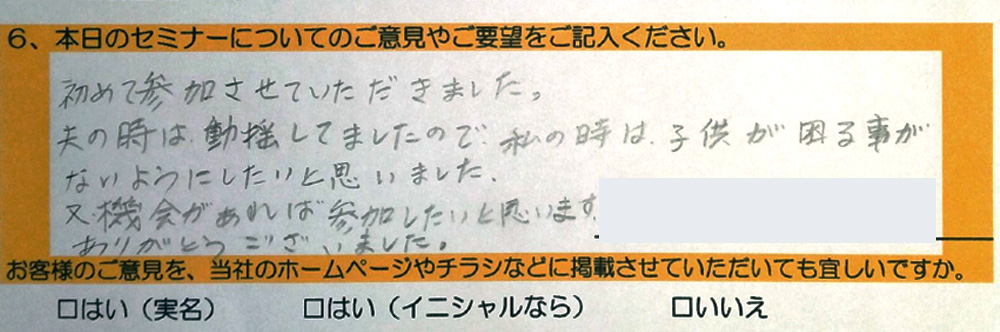 6、本日のセミナーについてのご意見やご要望をご記入ください。
初めて参加させていただきました。
夫の時は、動揺してましたので、私の時は、子供が困る事が
ないようにしたいと思いました。
又、機会があれば参加したいと思います
ありがとうございました。
お客様のご意見を、当社のホームページやチラシなどに掲載させていただいても宜しいですか。
□はい（実名） □はい（イニシャルなら） □いいえ